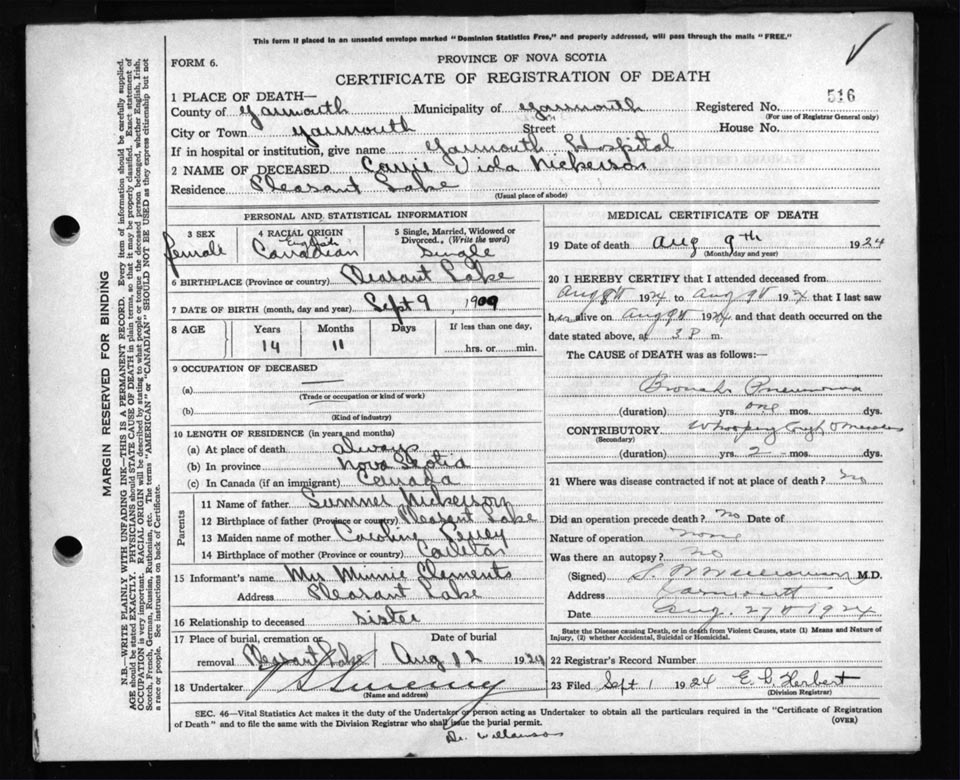 This form if placed in an unsealed envelope marked "Dominion Statistics Free," and properly addressed, will pass through the mails "FREE."
FORM 6.
PROVINCE OF NOVA SCOTIA
CERTIFICATE OF REGISTRATION OF DEATH
MARGIN RESERVED FOR BINDING
N.B.—WRITE PLAINLY WITH UNFADING INK—THIS IS A PERMANENT RECORD. Every item of information should be carefully supplied.
AGE should be stated EXACTLY. PHYSICIANS should STATE CAUSE OF DEATH in plain terms, so that it may be properly classified. Exact statement of
OCCUPATION is very important. RACIAL ORIGIN will be described by stating to what people or tongue the deceased person belonged, whether English, Irish,
Scotch, French, German, Russian, Ruthenian, etc. The terms "AMERICAN" or "CANADIAN" SHOULD NOT BE USED as they express citizenship but not
a race or people. See instructions on back of Certificate.
1 PLACE OF DEATH—
County of Yarmouth Municipality of Yarmouth Registered No. 516
(For use of Registrar General only)
City or Town Yarmouth Street House No.
If in hospital or institution, give name Yarmouth Hospital
2 NAME OF DECEASED Carrie Viola Nickerson
Residence Pleasant Lake
(Usual place of abode)
PERSONAL AND STATISTICAL INFORMATION
3 SEX
female
4 RACIAL ORIGIN
English
Canadian
5 Single, Married, Widowed or
Divorced. (Write the word)
single
6 BIRTHPLACE (Province or country) Pleasant Lake
7 DATE OF BIRTH (month, day and year) Sept 9, 1909
8 AGE Years Months Days If less than one day,
14 11 hrs. or min.
9 OCCUPATION OF DECEASED
(a)
(Trade or occupation or kind of work)
(b)
(Kind of industry)
10 LENGTH OF RESIDENCE (in years and months)
(a) At place of death always
(b) In province Nova Scotia
(c) In Canada (if an immigrant) Canada
Parents
11 Name of father Sumner Nickerson
12 Birthplace of father (Province or country) Pleasant Lake
13 Maiden name of mother Caroline
14 Birthplace of mother (Province or country) Carleton
15 Informant's name Mrs Minnie Clements
Address Pleasant Lake
16 Relationship to deceased sister
17 Place of burial, cremation or Date of burial
removal Pleasant Lake Aug 12 1924
18 Undertaker Sweeny
(Name and address)
MEDICAL CERTIFICATE OF DEATH
19 Date of death Aug 9th 1924
(Month, day and year)
20 I HEREBY CERTIFY that I attended deceased from
Aug 8th 1924 to Aug 9th 1924 that I last saw
her alive on Aug 9th 1924 and that death occurred on
date stated above, at 3 P m.
The CAUSE of DEATH was as follows:—
Broncho Pneumonia
(duration) yrs. one mos. dys.
CONTRIBUTORY Whooping Cough & measles
(Secondary)
(duration) yrs. 2 mos. dys.
21 Where was disease contracted if not at place of death? no
Did an operation precede death? no Date of
Nature of operation none
Was there an autopsy? no
(Signed) M.D.
Address Yarmouth
Date Aug. 27th 1924
State the Disease causing Death, or in death from Violent Causes, state (1) Means and Nature of
Injury, (2) whether Accidental, Suicidal or Homicidal.
22 Registrar's Record Number
23 Filed Sept 1 1924 Herbert
(Division Registrar)
SEC. 46—Vital Statistics Act makes it the duty of the Undertaker or person acting as Undertaker to obtain all the particulars required in the "Certificate of Registration
of Death" and to file the same with the Division Registrar who shall issue the burial permit. (OVER)